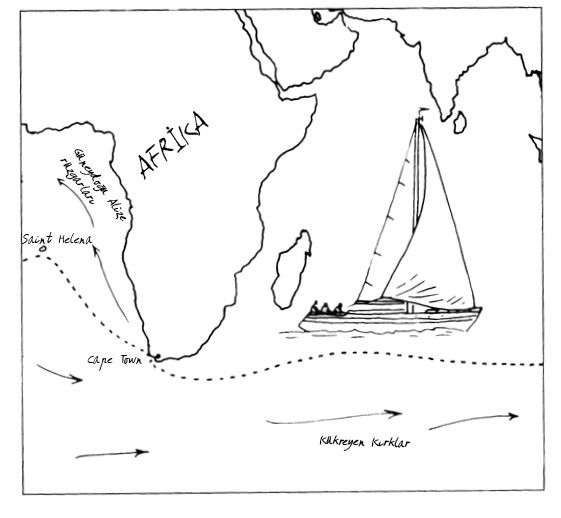 AFRİKA
Güneydoğu Alize
rüzgarları
Saint Helena
Cape Town
Kükreyen Kırklar